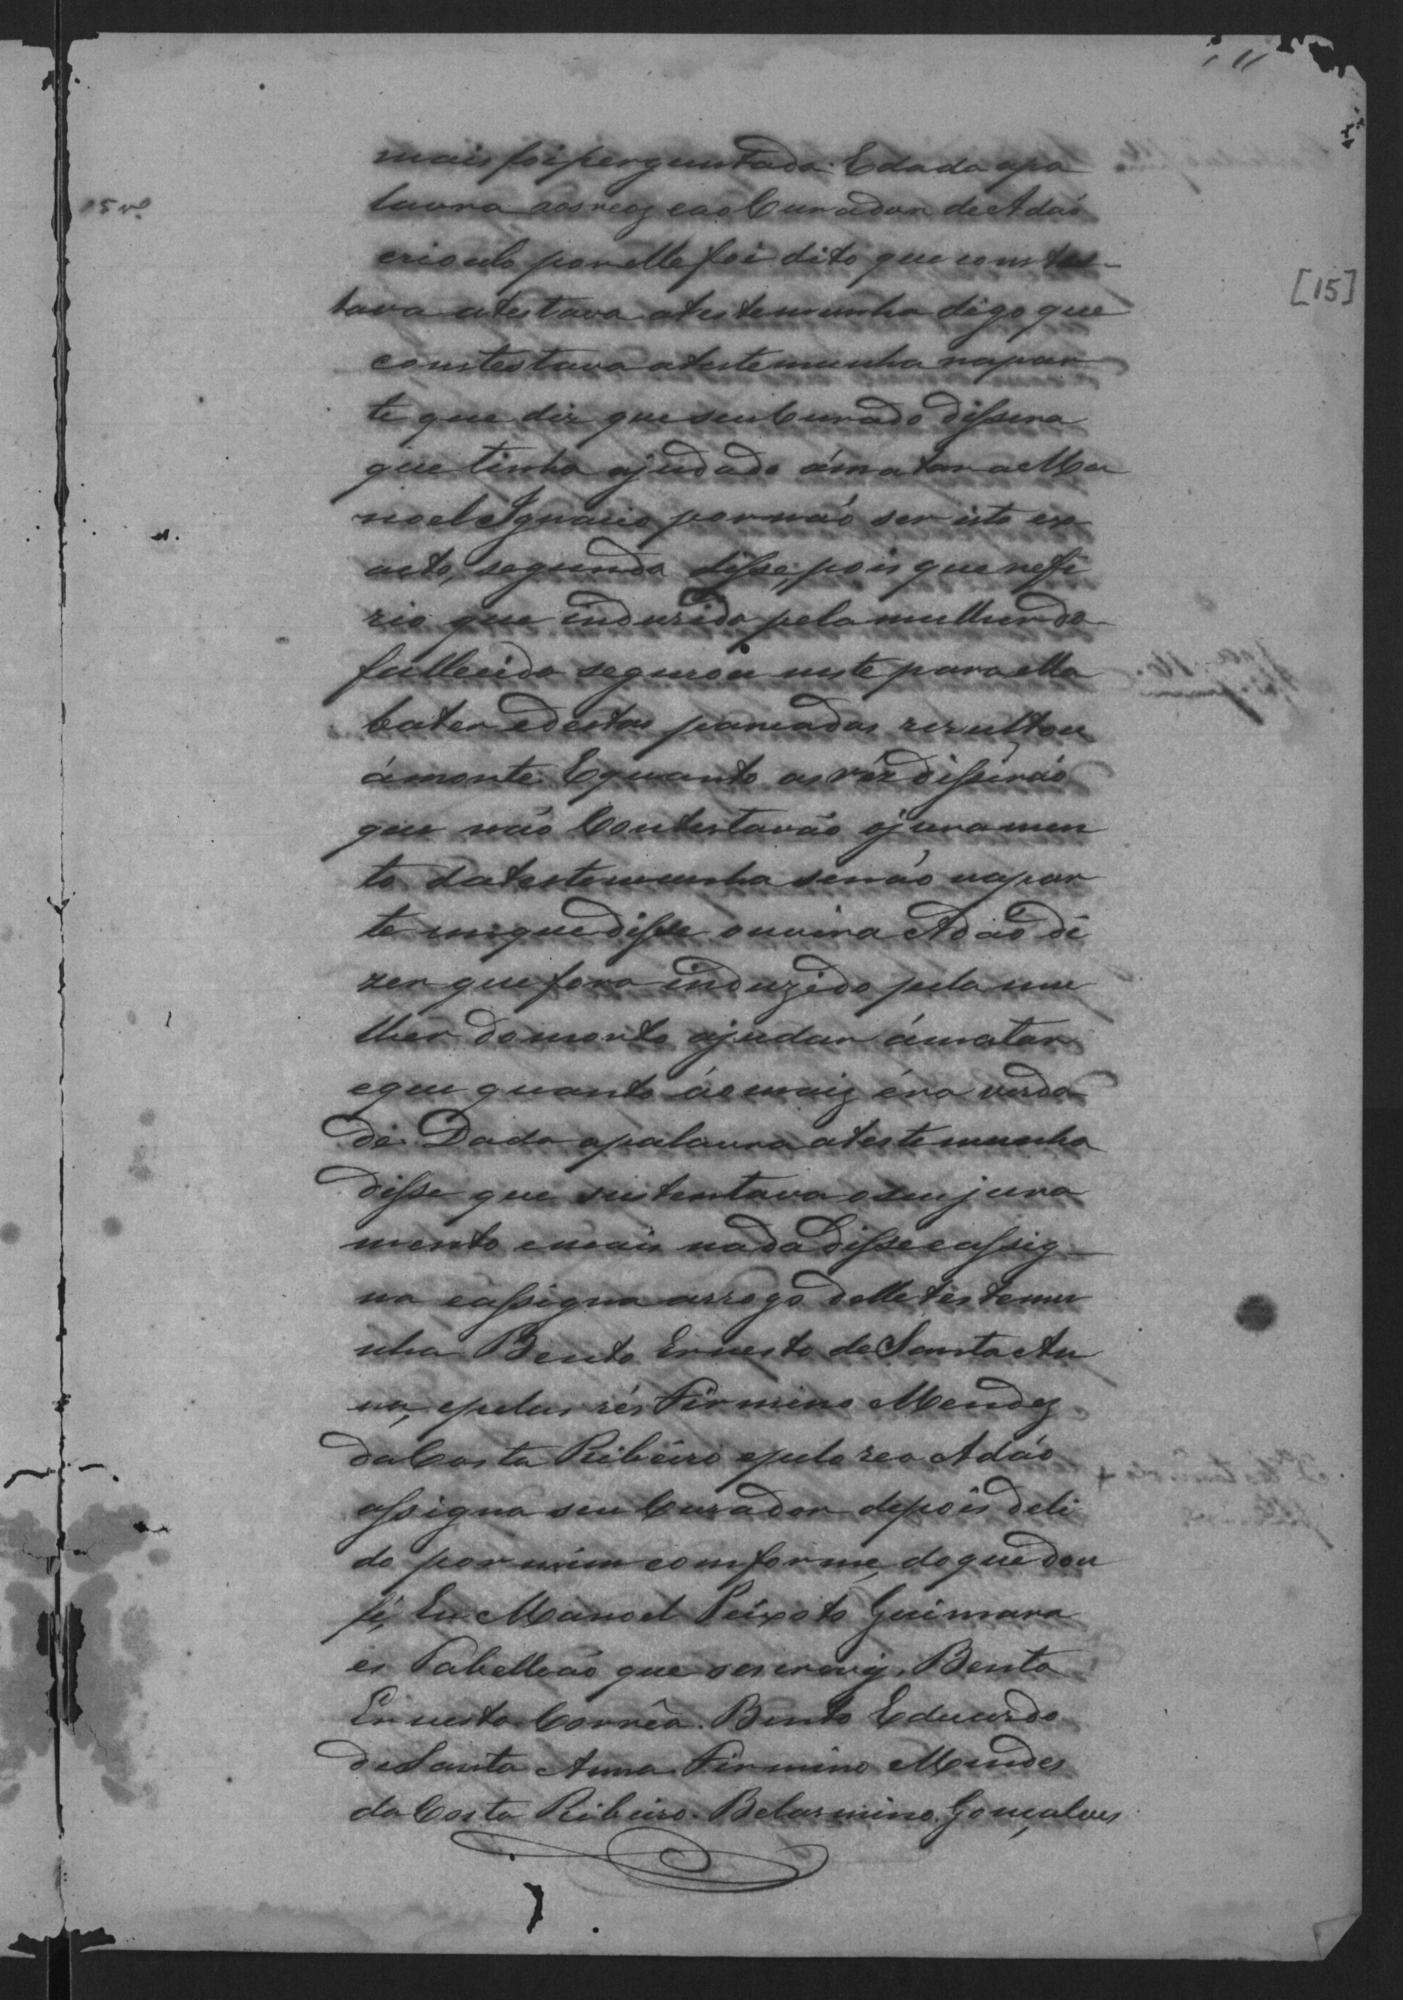 15 vº
[15]
mais foi perguntada. E dada apa
lavra aos reoz eao Curador de Adáo
crioulo por elle foi dito que contes-
tava atestava atestemunha digo que
constestava atestemunha napar
te que diz que seu Curado dissera
que tinha ajudado ámatar a Ma
noel Ignacio por não ser isto ex
acto, segundo disse, pois que refi
rio que induzido pela mulher do
fallecido segurou neste para ella
bater e destas pancadas rezultou
ámorte. E quanto as réz disserão
que não Contestavão ojuramen
to datestemunha senão napar
te em que disse ouvira Adão di
zer que fora induzido pela mu
lher do morto ajudar ámatar
eque quanto áo maiz éra verda
de. Dada apalavra atestemunha
disse que sustentava oseu jura
mento emais nada disse eassig-
na eassigna arrogo delle testemu
nha Bento Ernesto de Santa An
na, epelas rés Firmino Mendez
da Costa Ribeiro epelo reo Adáo
assigna seu Curador depois deli
do por mim comforme, do que dou
fé, Eu Manoel Peixoto Guimara
es Tabelleão que oescrevy. Bento
Ernesto Corrêa. Bento Eduardo
de Santa Anna Firmino Mendes
da Costa Ribeiro. Belarmino Gonçalves